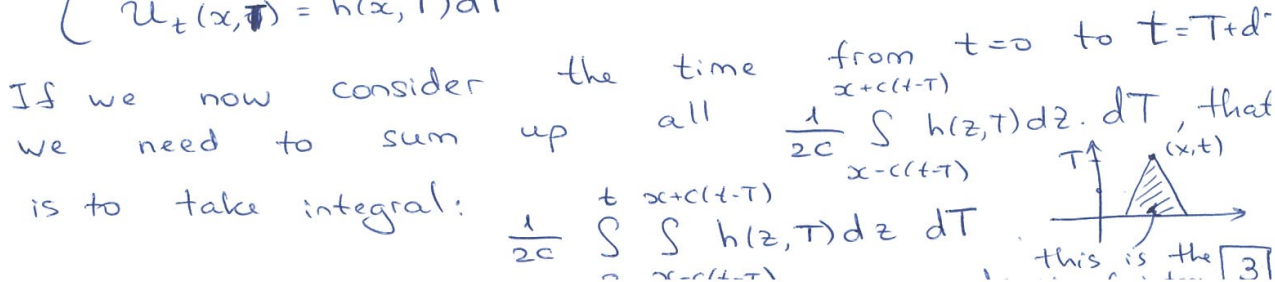 U_t(x,T) = h(x,T)dT
If we now consider the time from t=0 to t=T+d
we need to sum up all 1/2c ∫_{x-c(t-T)}^{x+c(t-T)} h(z,T)dz. dT, that
is to take integral: 1/2c ∫_0^t ∫_{x-c(t-T)}^{x+c(t-T)} h(z,T)dz dT
T (x,t)
this is the 3